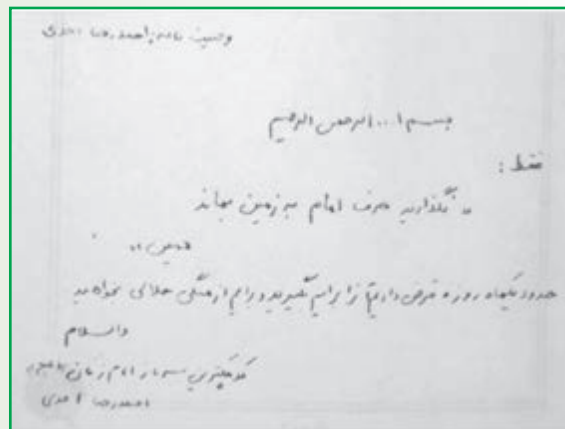 وصیت نامه احمدرضا احدی
بسم ا... الرحمن الرحیم
فقط:
« نگذارید حرف امام به زمین بماند
همین »
حدود یکماه روزه قرض دارم تا برایم بگیرید و برایم از همگی حلالی بخواهید
والسلام
کوچکترین سرباز امام زمان
احمدرضا احدی